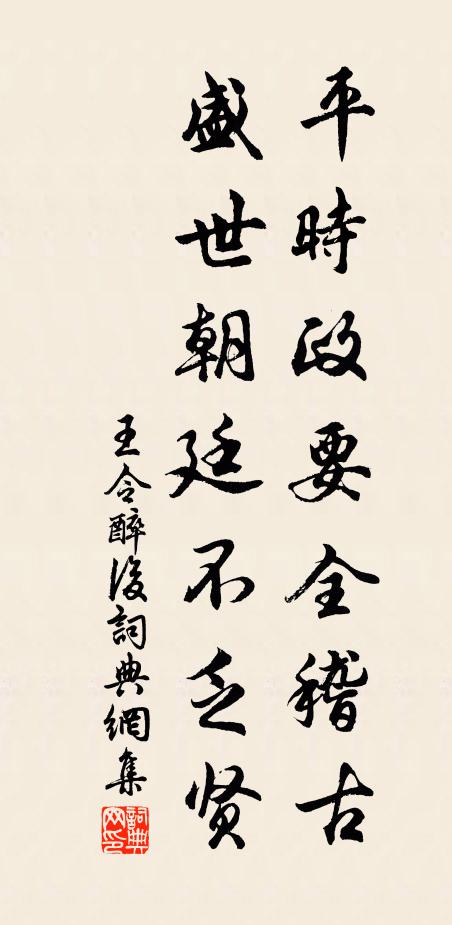 平時政要全稽古
盛世朝廷不乏贤
王令醉後詞典網集
詞典網印